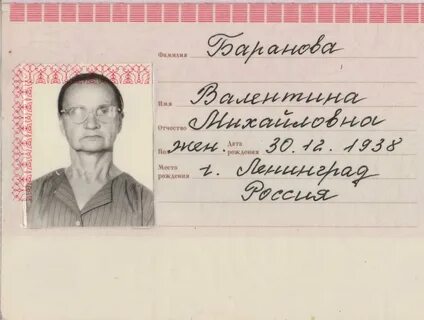 Фамилия Баранова
Имя Валентина
Отчество Михайловна
Пол жен. Дата рождения 30.12.1938
Место рождения г. Ленинград
Россия